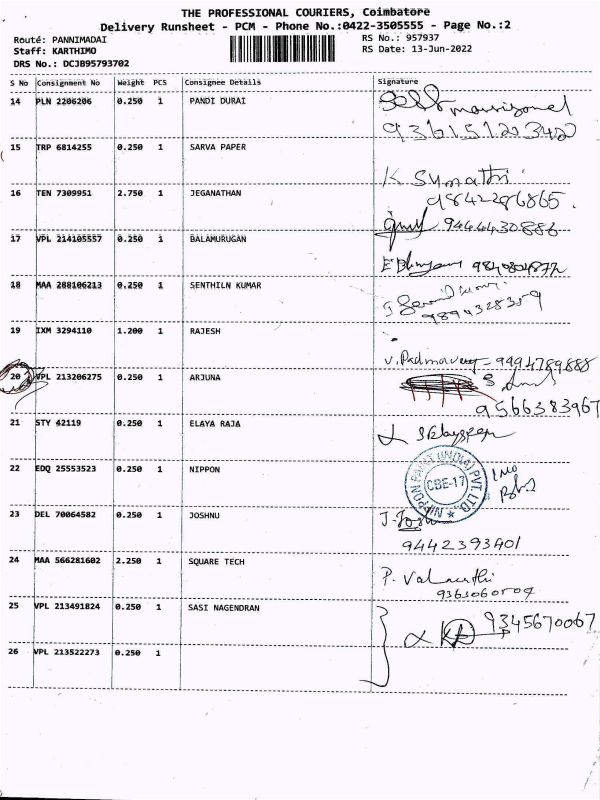 THE PROFESSIONAL COURIERS, Coimbatore
Delivery Runsheet - PCM - Phone No.:0422-3505555 - Page No.:2
Route: PANNIMADAI
RS No.: 957937
Staff: KARTHIMO
RS Date: 13-Jun-2022
DRS No.: DCJB95793702
S No Consignment No Weight PCS Consignee Details Signature
14 PLN 2206206 0.250 1 PANDI DURAI
15 TRP 6814255 0.250 1 SARVA PAPER
K Sumathi
9842286865.
16 TEN 7309951 2.750 1 JEGANATHAN
9444430886
17 VPL 214105557 0.250 1 BALAMURUGAN
18 MAA 288106213 0.250 1 SENTHILN KUMAR
9894328359
19 IXM 3294110 1.200 1 RAJESH
V. Padmavathy - 9994789888
20 VPL 213206275 0.250 1 ARJUNA
9566383967
21 STY 42119 0.250 1 ELAYA RAJA
22 EDQ 25553523 0.250 1 NIPPON
NIPPON PAINT (INDIA) PVT. LTD.
CBE-17
23 DEL 70064582 0.250 1 JOSHNU
J. Josh
9442393401
24 MAA 566281602 2.250 1 SQUARE TECH
P. Valarmathi
25 VPL 213491824 0.250 1 SASI NAGENDRAN
9345670067
26 VPL 213522273 0.250 1